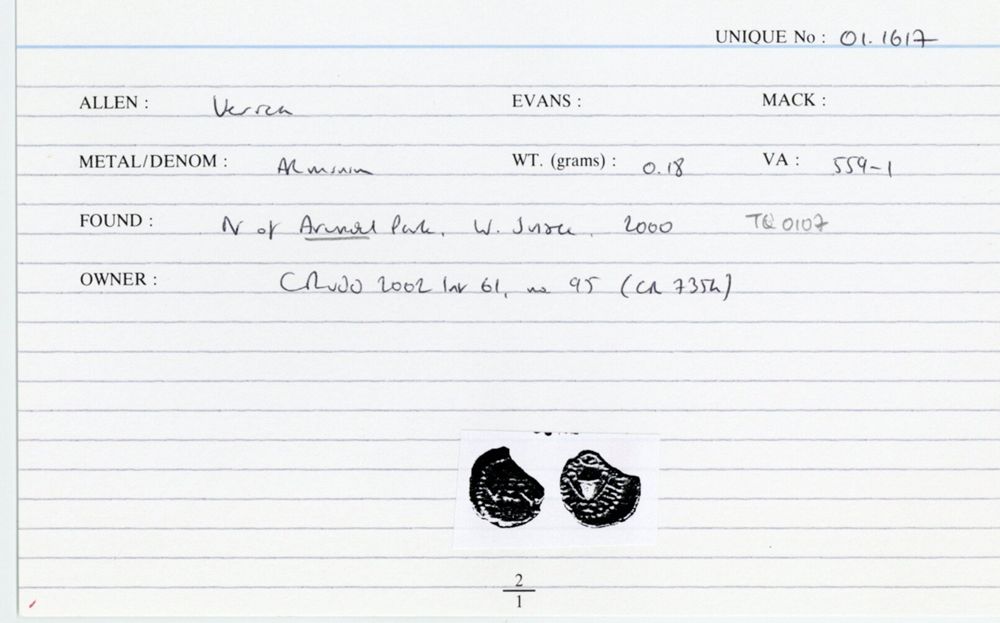 UNIQUE No : 01.1617
ALLEN : Verica EVANS : MACK :
METAL/DENOM : AR minim WT. (grams) : 0.18 VA : 559-1
FOUND : N of Arundel Park, W. Sussex, 2000 TQ 0107
OWNER : 2002 61, no 95 (CR 735h)
2
1